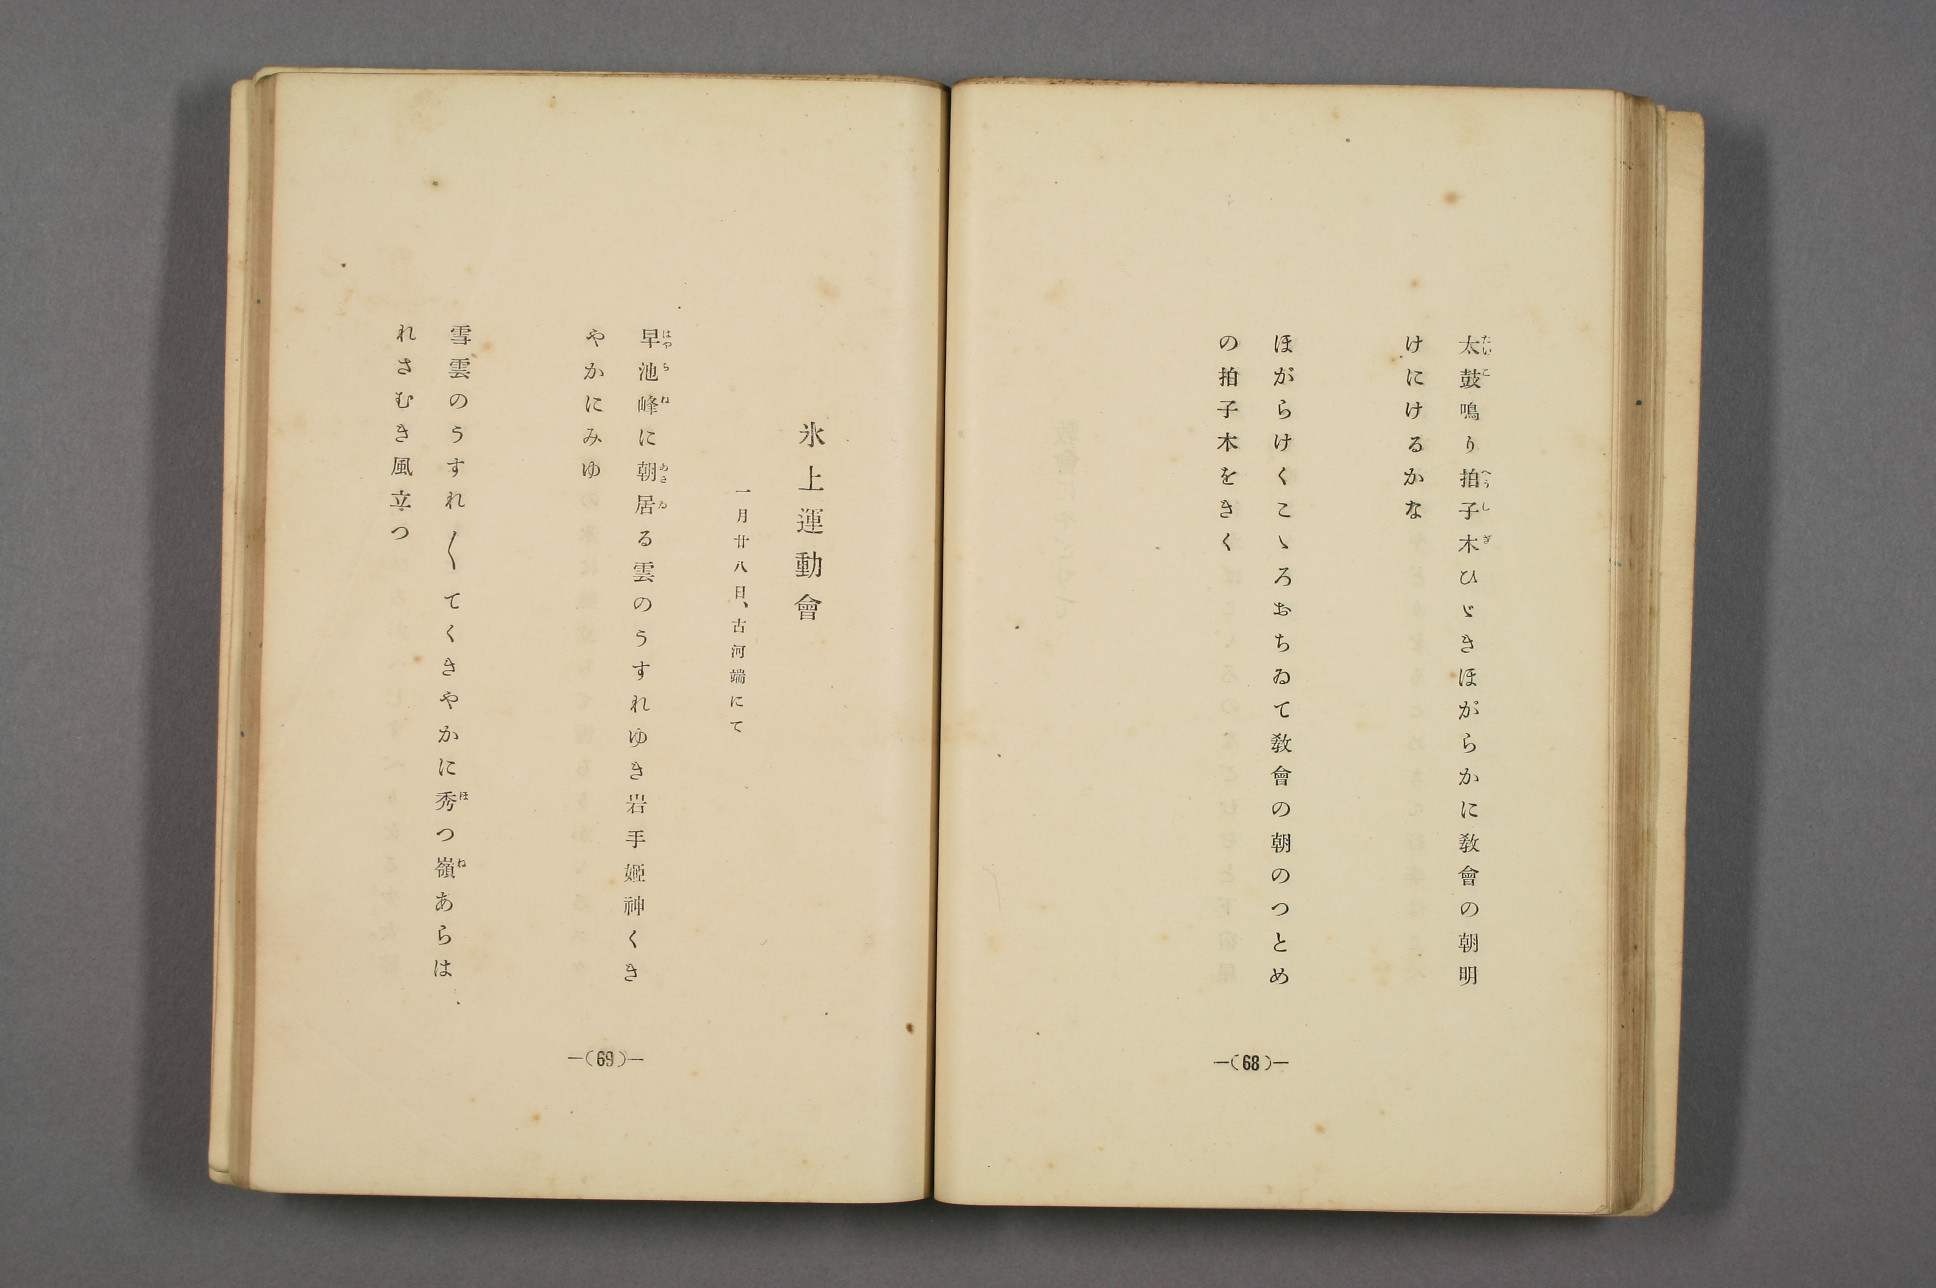 太鼓鳴り拍子木ひゞきほがらかに敎會の朝明
けにけるかな
ほがらけくこゝろおちゐて敎會の朝のつとめ
の拍子木をきく
—(68)—
氷上運動會
一月廿八日、古河端にて
早池峰に朝居る雲のうすれゆき岩手姫神くき
やかにみゆ
雪雲のうすれ〱てくきやかに秀つ嶺あらは
れさむき風立つ
—(69)—